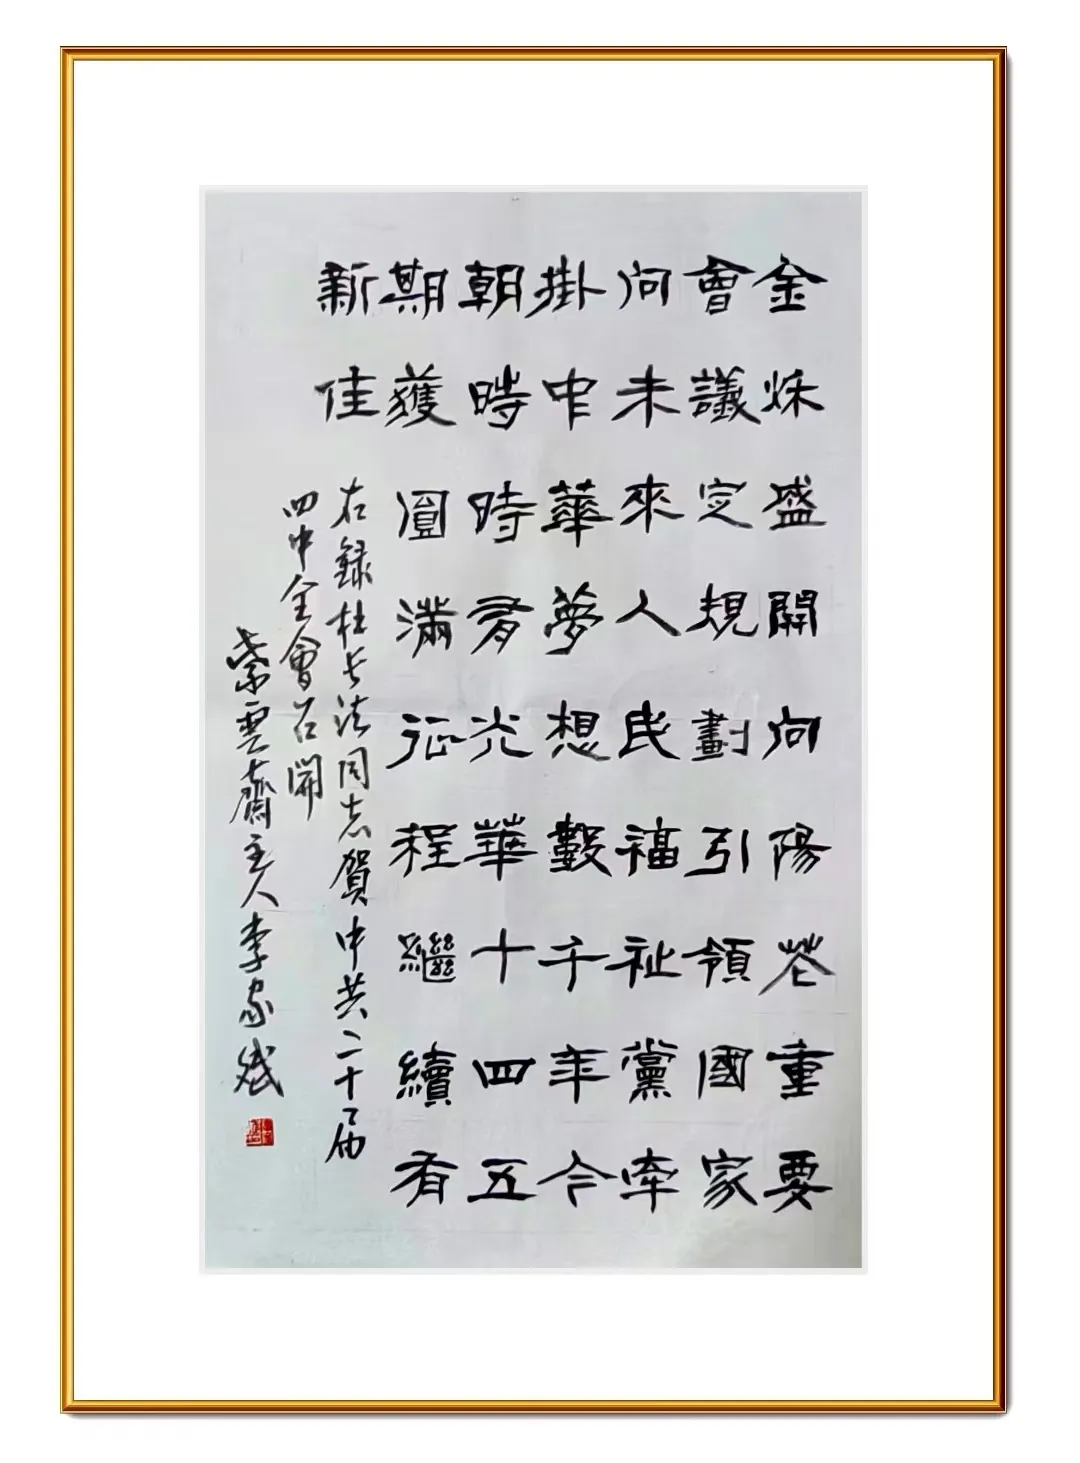 金秌盛開向陽花重要
會議定規劃引領國家
向未來人民福祉黨牽
掛中華夢想數千年今
朝時時有光華十四五
期獲圓滿征程繼續有
新佳
右録杜长法同志賀中共二十届
四中全會召開
紫雲齋主人李家斌